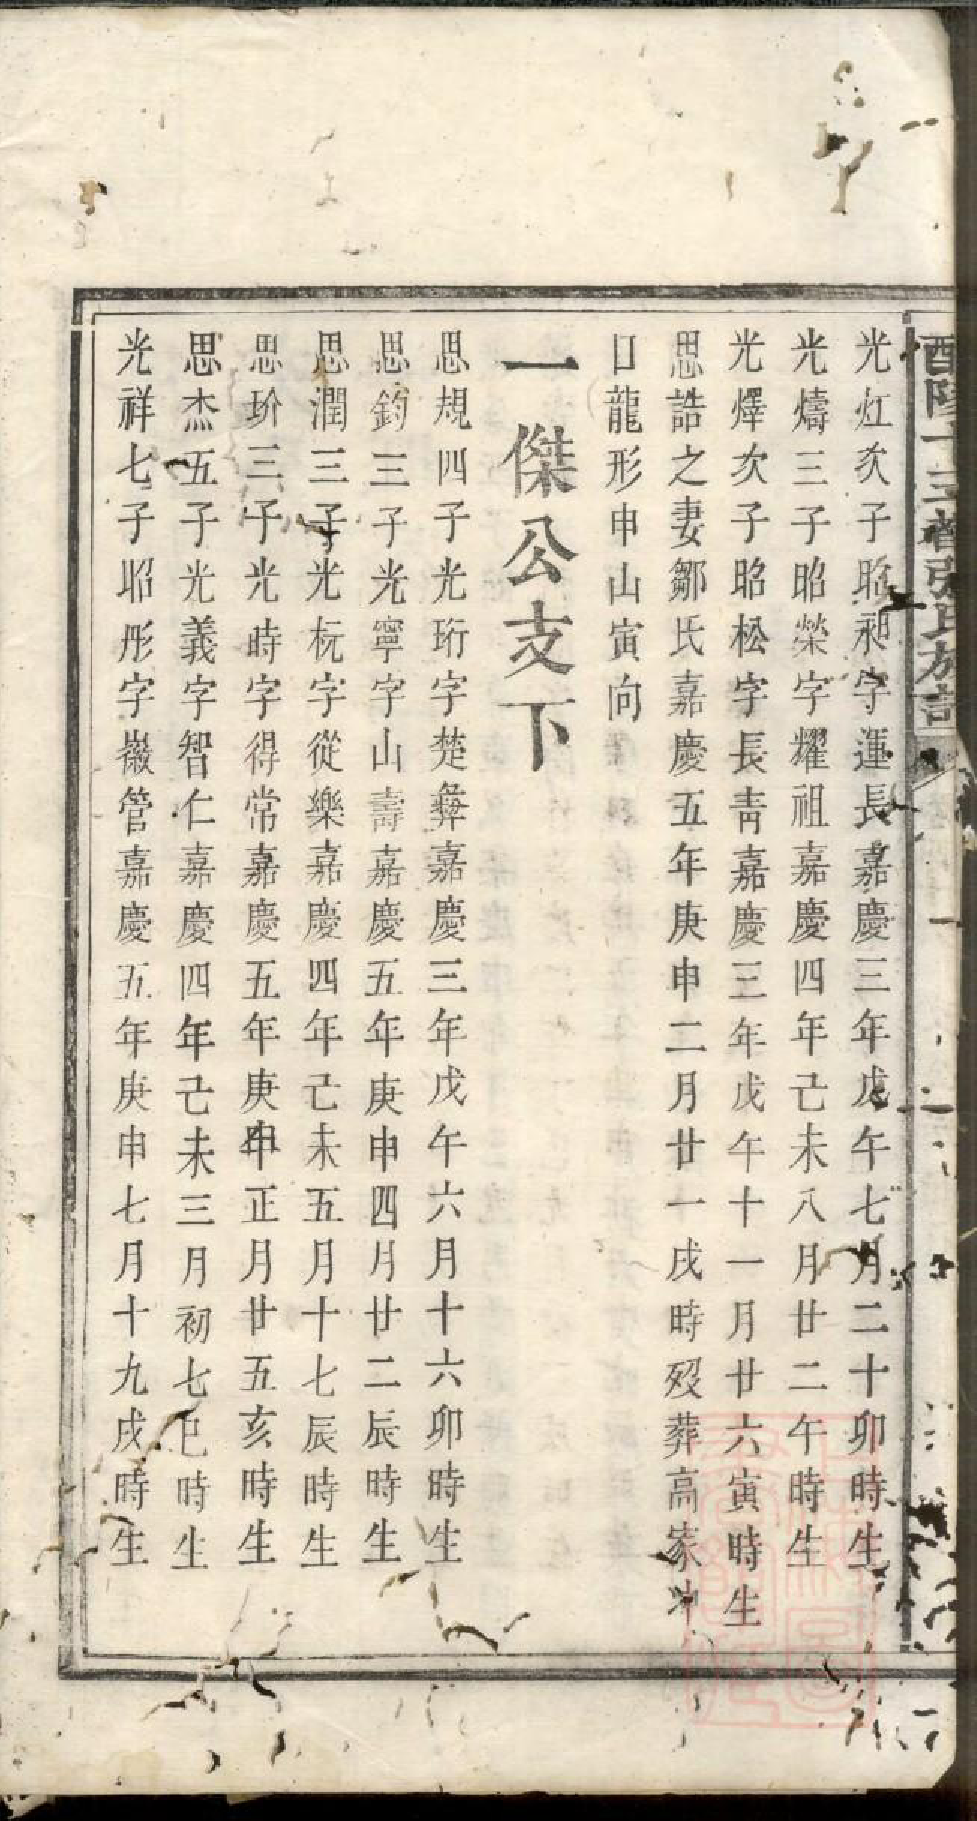 光灴次子昭昶字運長嘉慶三年戊午七月二十卯時生
光燽三子昭榮字耀祖嘉慶四年己未八月廿二午時生
光燡次子昭松字長青嘉慶三年戊午十一月廿六寅時生
思誥之妻鄒氏嘉慶五年庚申二月廿一戌時歿葬高家冲
口龍形申山寅向
一傑公支下
思規四子光珩字楚彝嘉慶三年戊午六月十六卯時生
思鈞三子光寧字山壽嘉慶五年庚申四月廿二辰時生
思潤三子光杬字從樂嘉慶四年己未五月十七辰時生
思玠三子光時字得常嘉慶五年庚申正月廿五亥時生
思杰五子光義字智仁嘉慶四年己未三月初七巳時生
光祥七子昭彤字嶶管嘉慶五年庚申七月十九戌時生